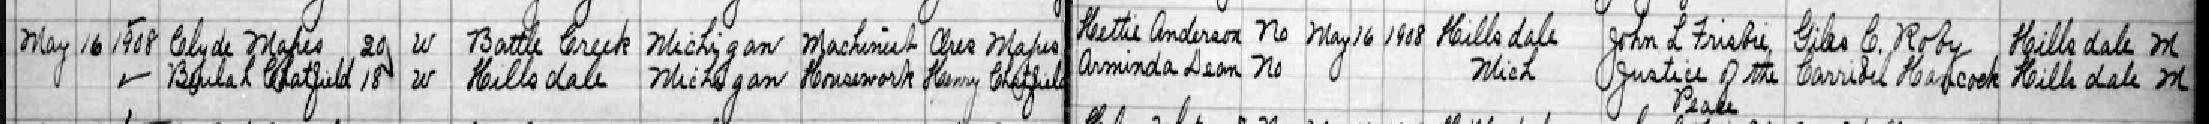 May 16 1908 Clyde Mapes 20 W Battle Creek Michigan Machinist Ares Mapes Hettie Anderson No May 16 1908 Hillsdale John L Frisbie, Giles C. Roby Hillsdale M
Beulah Chatfield 18 W Hillsdale Michigan Housework Henry Chatfield Arminda Dean No Mich Justice of the Carrie Hancock Hillsdale M
Peace